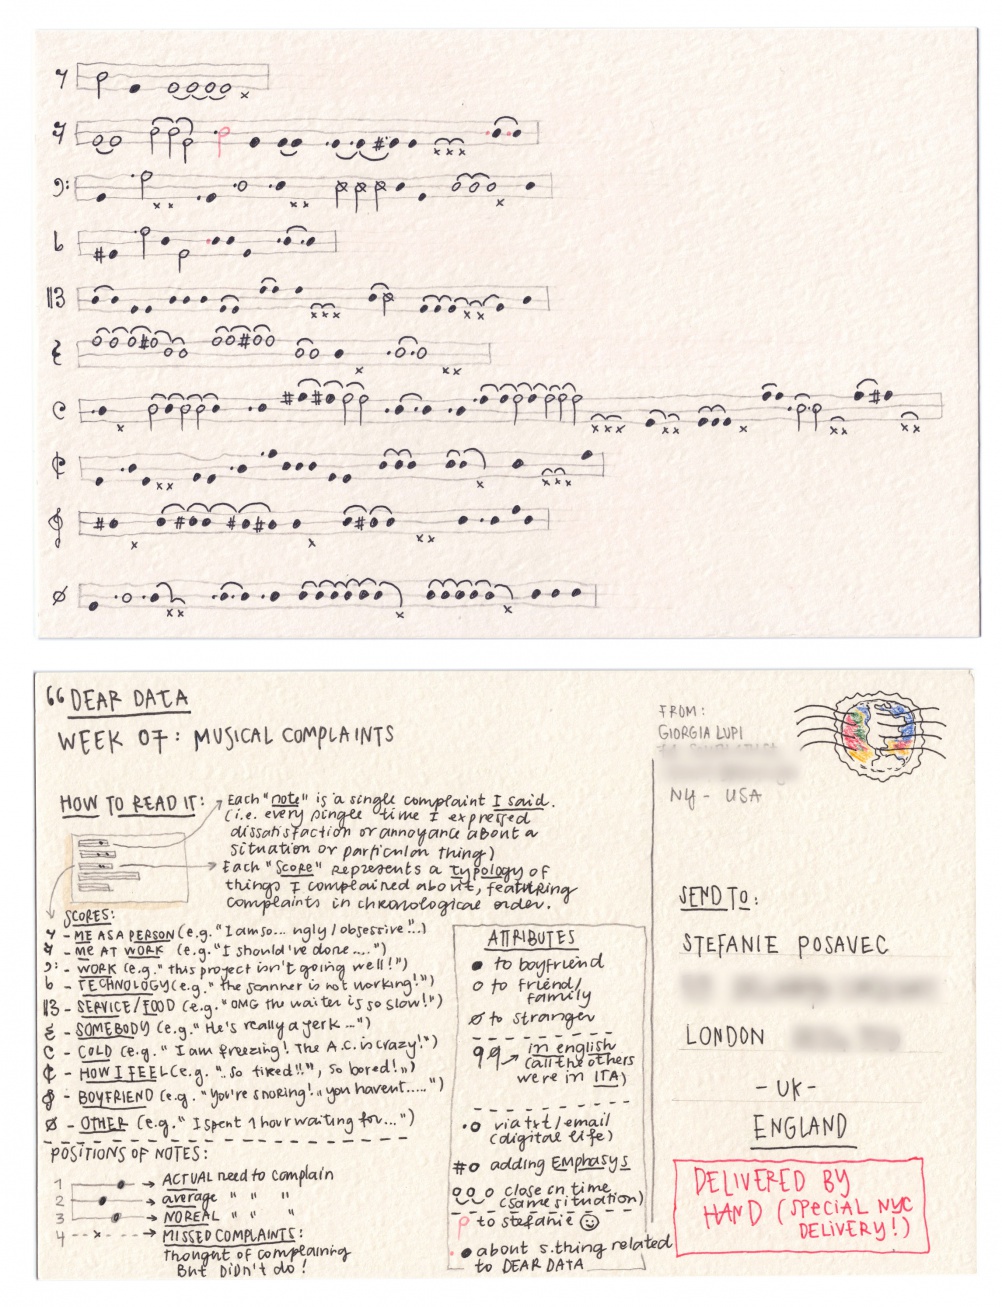 DEAR DATA
WEEK 07: MUSICAL COMPLAINTS
HOW TO READ IT:
Each "note" is a single complaint I said.
(i.e. every single time I expressed
dissatisfaction or annoyance about a
situation or particular thing)
Each "Score" represents a typology of
things I complained about, featuring
complaints in chronological order.
SCORES:
- ME AS A PERSON (e.g. "I am so... ugly/obsessive"..)
- ME AT WORK (e.g. "I should've done....")
- WORK (e.g. "this project isn't going well!")
- TECHNOLOGY (e.g. "the scanner is not working!")
- SERVICE/FOOD (e.g. "OMG the waiter is so slow!")
- SOMEBODY (e.g. "He's really a jerk...")
- COLD (e.g. "I am freezing! The A.C. is crazy!")
- HOW I FEEL (e.g. "..So tired!!", so bored!")
- BOYFRIEND (e.g. "You're snoring!, you havent.....")
- OTHER (e.g. "I spent 1 hour waiting for...")
POSITIONS OF NOTES:
1 → ACTUAL need to complain
2 → average " " "
3 → NO REAL " " "
4 --x--→ MISSED COMPLAINTS:
thought of complaining
But DIDN'T do!
ATTRIBUTES
to boyfriend
to friend/
family
to stranger
in english
(all the others
were in ITA)
via txt/email
(digital life)
#o adding EMPHASYS
close in time
(same situation)
to stefanie
about s.thing related
to DEAR DATA
FROM:
GIORGIA LUPI
NY - USA
SEND TO:
STEFANIE POSAVEC
LONDON
- UK -
ENGLAND
DELIVERED BY
HAND (SPECIAL NYC
DELIVERY!)